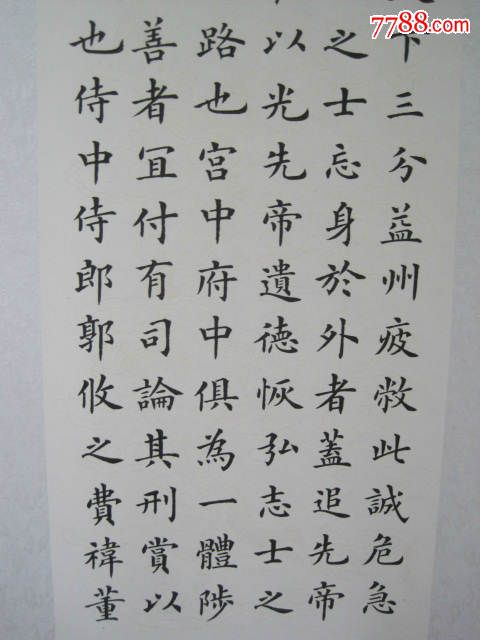 7788.com
下三分益州疲敝此誠危急
之士忘身於外者蓋追先帝
以光先帝遺德恢弘志士之
路也宮中府中俱為一體陟
善者冝付有司論其刑賞以
也侍中侍郎郭攸之費禕董